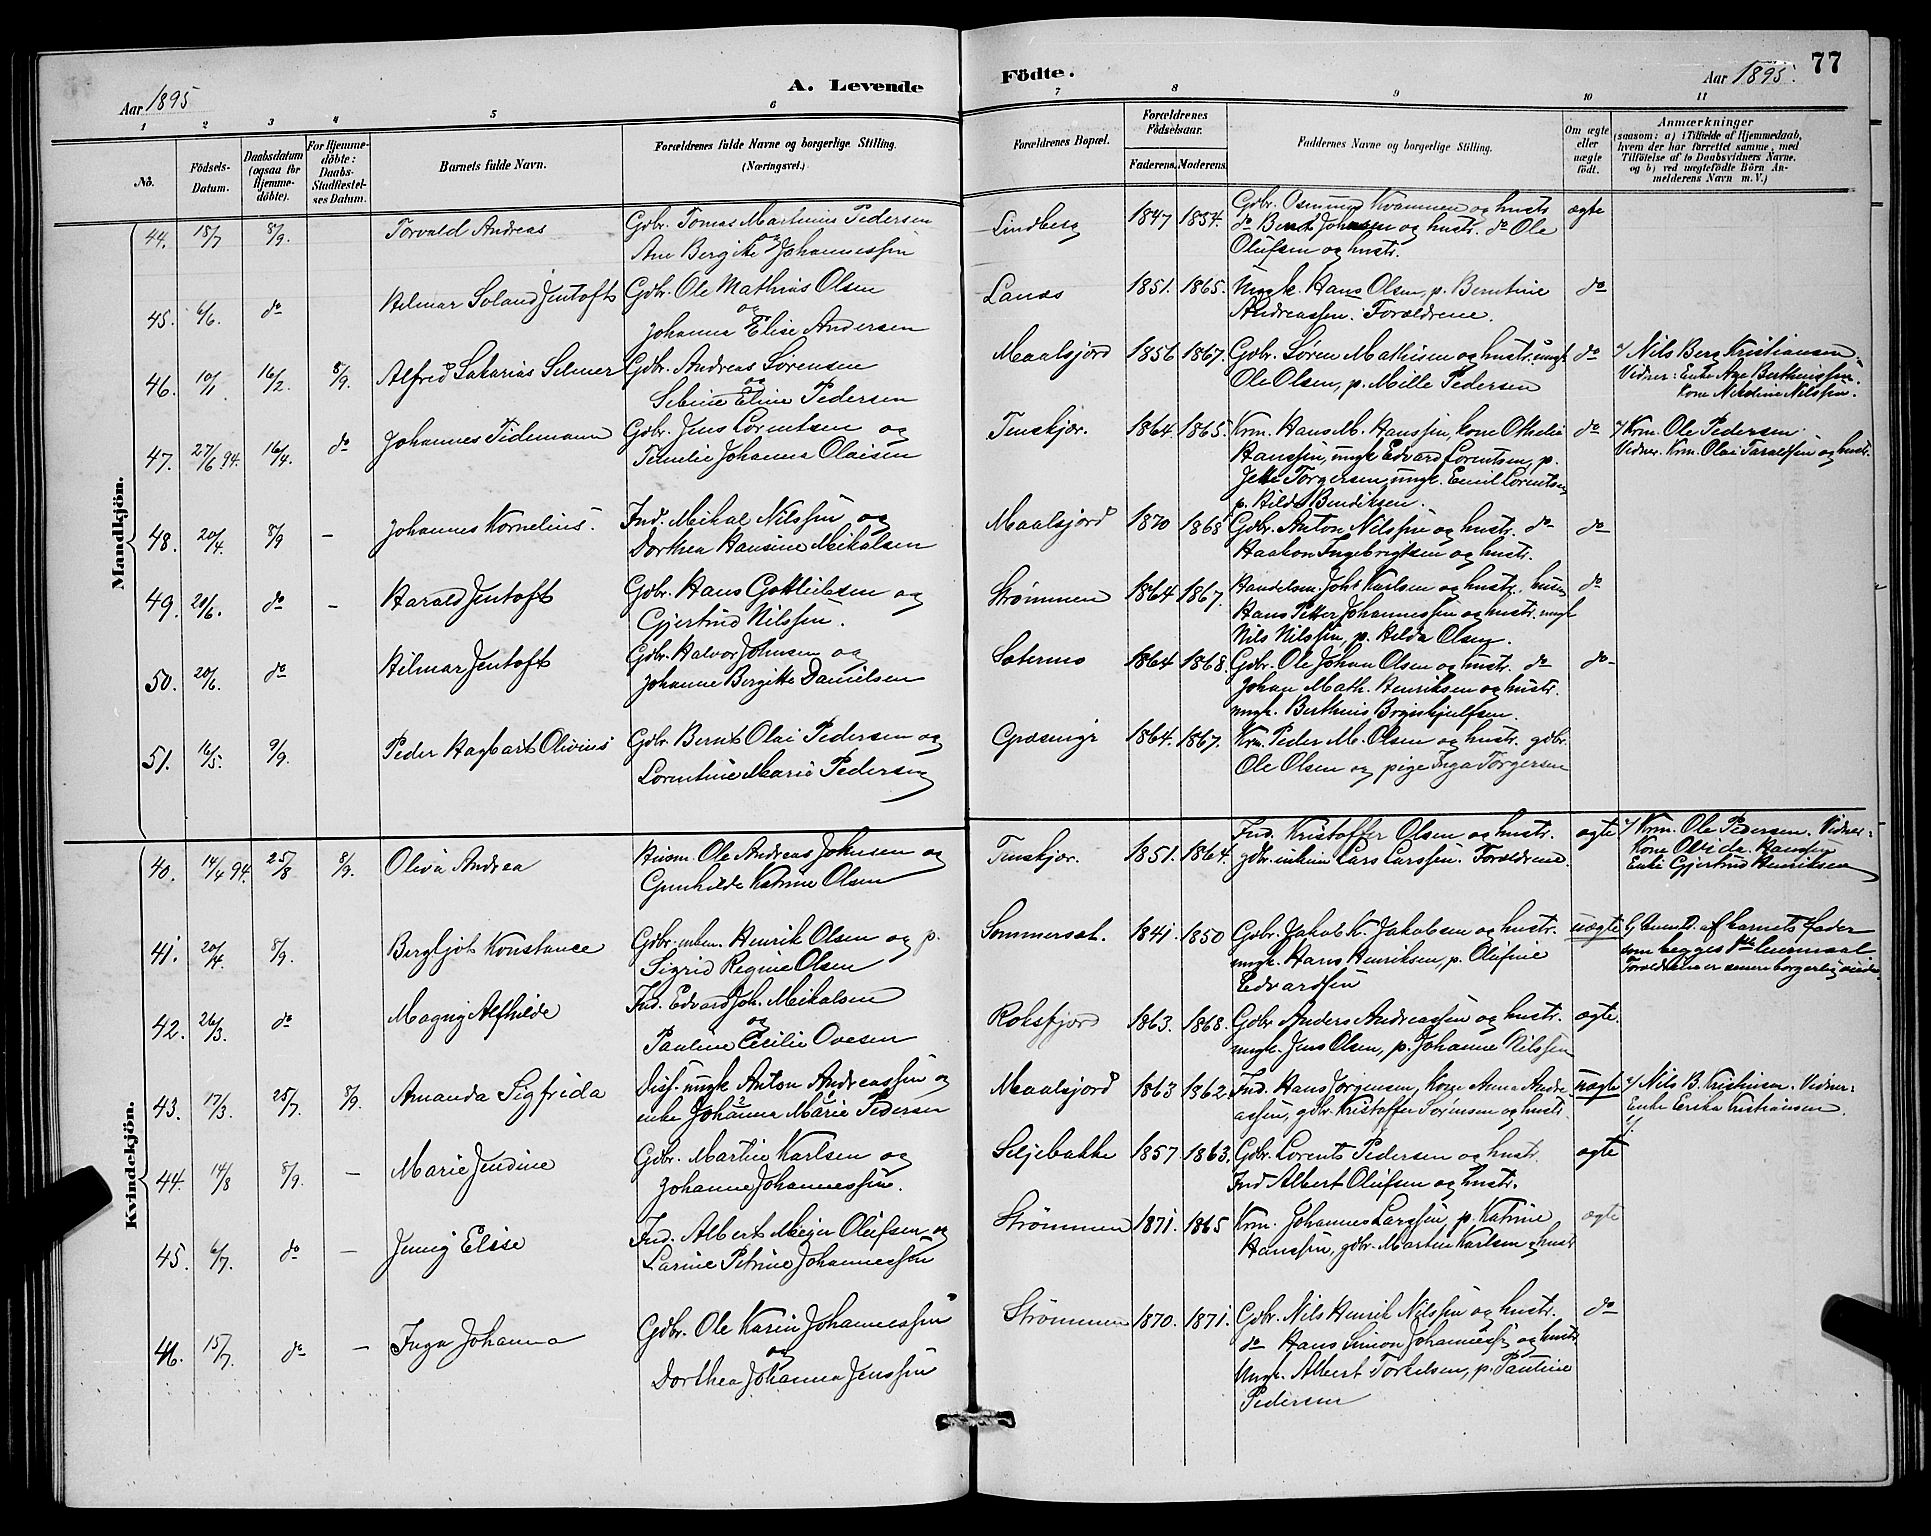 Aar 1895
A. Levende
Födte.
Aar 1895.
77
1 2 3 4 5 6 7 8 9 10 11
No.
Födsels-Datum.
Daabsdatum (ogsaa for Hjemme-döbte).
For Hjemme-döbte: Daabs-Stadfæstel-ses Datum.
Barnets fulde Navn.
Forældrenes fulde Navne og borgerlige Stilling.
(Næringsvei.)
Forældrenes Bopæl.
Forældrenes Födselsaar.
Faderens. Moderens.
Faddernes Navne og borgerlige Stilling.
Om ægte eller uægte födt.
Anmærkninger
(saasom: a) i Tilfælde af Hjemmedaab,
hvem der har forrettet samme, med
Tilföielse af to Daabsvidners Navne.
og b) ved uægtefödte Börn An-
melderens Navn m. V.)
Mandkjön.
44. 15/7 8/9. Torvald Andreas
Gdbr. Tomas Martinus Pedersen
og
Ane Bergitte Johannessen
Lindberg 1847 1854.
Gdbr. Osmund Kvammen og hustr.
do Bernt Johnsen og hustr. do Ole
Olufsen og hustr.
ægte
45. 6/6. do Hilmar Soland Jentoft
Gdbr. Ole Mathias Olsen
og
Johanna Elise Andersen
Lanæs 1851. 1865.
Ungk. Hans Olsen, p. Berntine
Andreassen. Forældrene.
do
46. 10/1 16/2. 8/9. Alfred Sakarias Selmer
Gdbr. Andreas Sørensen
og
Sebine Eline Pedersen
Maalsjord 1856 1867.
Gdbr. Søren Mathisen og hustr. ungk.
Ole Olsen, p. Mille Pedersen
do
a/ Nils Berg Kristiansen.
Vidner: Enke Ane Berthenssen.
Kone Nikoline Nilssen.
47. 27/6 94. 16/4. do Johannes Tidemann
Gdbr. Jens Lorentsen og
Emilie Johanna Olaisen
Finskjær. 1864. 1865.
Krm. Hans M. Hanssen, Kone Othelie
Hanssen, ungk. Edvard Lorentsen, p.
Jette Torgersen, ungk. Emil Lorentsen
p. Hilda Bendiksen.
do
a/ Krm. Ole Pedersen.
Vidner. Krm. Olai Taraldsen og hustr.
48. 20/4. 8/9 - Johannes Kornelius.
Ind. Mikal Nilssen og
Dorthea Hansine Mikalsen
Maalsjord 1870 1868
Gdbr. Anton Nilssen og hustr. do
Haakon Ingebrigtsen og hustr.
do
49. 20/6. do - Harald Jentoft
Gdbr. Hans Gottliebsen og
Gjertrud Nilssen.
Strømmen 1864 1867.
Handelsm. Joh. Karlsen og hustr. husm.
Hans Petter Johannessen og hustr. ungk.
Nils Nilssen, p. Hilda Olsen.
do
50. 20/6. do Hilmar Jentoft
Gdbr. Halvor Johnsen og
Johanne Bergitte Danielsen
Sætermo 1864 1868.
Gdbr. Ole Johan Olsen og hustr. do
Johan Math. Henriksen og hustr.
ungk. Berthens Brynskjulfsen.
do
51. 16/5. 9/9. Peder Hagbart Olivius
Gdbr. Bernt Olai Pedersen og
Lorentine Marie Pedersen
Græsmyr 1864. 1867.
Krm. Peder M. Olsen og hustr. gdbr.
Ole Olsen og pige Inga Torgersen
Kvindekjön.
40. 14/4 94. 25/8 8/9. Oliva Andrea
Husm. Ole Andreas Johnsen og
Gunhilde Katrine Olsen
Finskjær. 1851. 1864.
Ind. Kristoffer Olsen og hustr.
gdbr. enkem. Lars Larssen. Forældrene.
ægte
a/ Krm. Ole Pedersen. Vidner:
Kone Ovide Hanssen
Enke Gjertrud Henriksen
41. 20/4. 8/9. Bergljot Konstance
Gdbr. enkem. Henrik Olsen og p.
Sigrid Regine Olsen
Sommerset. 1841. 1850
Gdbr. Jakob K. Jakobsen og hustr.
ungk. Hans Henriksen, p. Olufine
Edvardsen
uægte
b/ Anmeldt af barnets fader
som begges 1ste leiermaal
Forældrene er senere borgerlig viede
42. 26/3. do Magny Alfhilde
Ind. Edvard Joh. Mikalsen
og
Pauline Cecilie Ovesen
Roksfjord 1863. 1868.
Gdbr Anders Andreassen og hustr.
ungk. Jens Olsen, p. Johanne Nilssen
ægte.
43. 17/3. 25/7. 8/9. Amanda Sigfrida
Disf. ungk Anton Andreassen og
enke Johanna Marie Pedersen
Maalsjord 1863 1862.
Ind. Hans Jørgensen, Kone Anna Andre-
assen, gdbr. Kristoffer Sørensen og hustr.
uægte
a/ Nils B. Kristiansen. Vidner:
Enke Erika Kristiansen.
44. 14/8 8/9. - Marie Jendine
Gdbr. Martin Karlsen og
Johanne Johannessen.
Seljebakke 1857. 1863.
Gdbr. Lorents Pedersen og hustr.
Ind Albert Olufsen og hustr.
ægte
45. 6/7. do - Jenny Elise
Ind. Albert Meyer Olufsen og
Larine Petrine Johannessen
Strømmen 1871. 1865
Krm. Johannes Larssen, p. Katrine
Hanssen, gdbr. Martin Karlsen og hustr
ægte
46. 15/7. do - Inga Johanna
Gdbr. Ole Karin Johannessen
og
Dorthea Johanna Jenssen
Strømmen 1870. 1871.
Gdbr. Nils Henrik Nilssen og hustr.
do Hans Simon Johannessen og hustr.
Ungk. Albert Torkilsen, p. Pauline
Pedersen
do